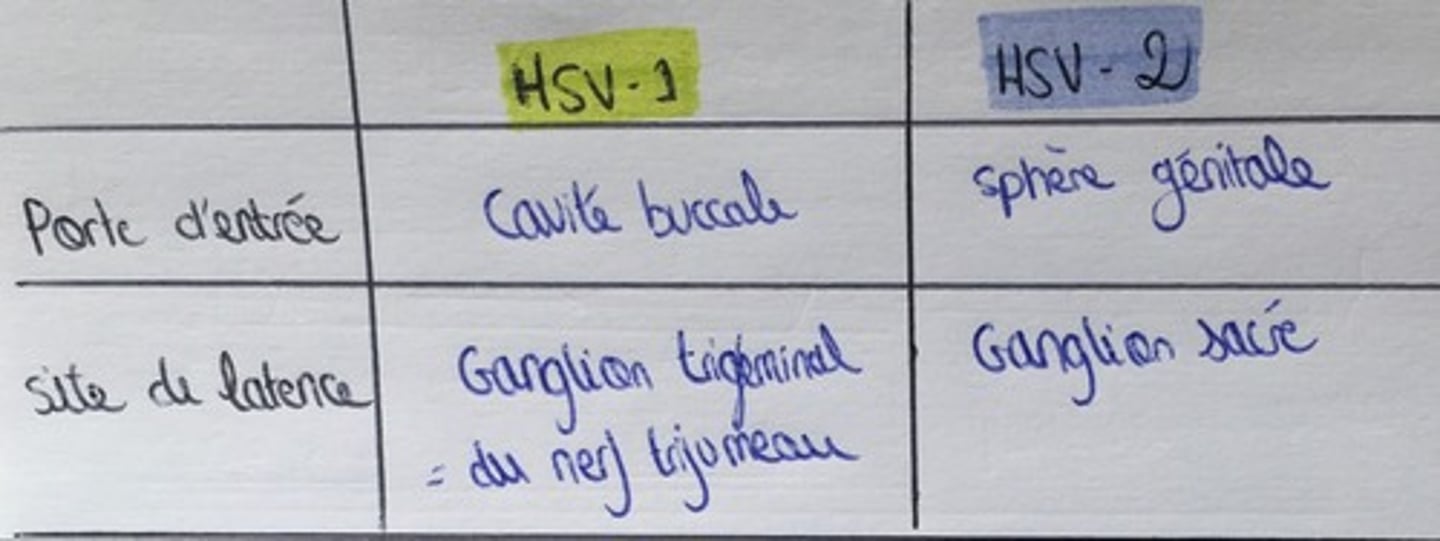 HSV-1 HSV-2
Porte d'entrée Cavité buccale sphère génitale
site de latence Ganglion trigéminal Ganglion sacré
= du nerf trijumeau